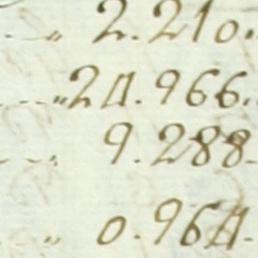 „ 2.210.
„ 24.966.
„ 9.288.
„ 0.964.